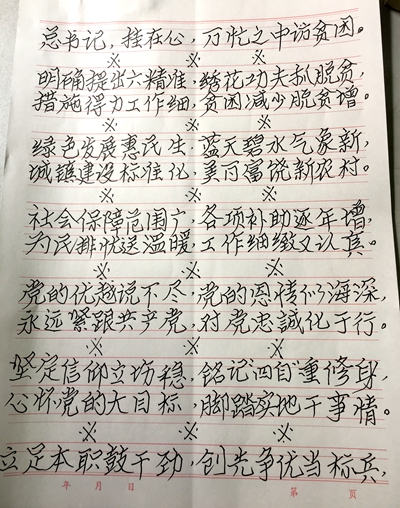 总书记,挂在心,万忙之中访贫困。
※ ※ ※
明确提出六精准,绣花功夫抓脱贫,
措施得力工作细,贫困减少脱贫增。
※ ※ ※
绿色发展惠民生,蓝天碧水气象新,
城镇建设标准化,美丽富饶新农村。
※ ※ ※
社会保障范围广,各项补助逐年增,
为民排忧送温暖,工作细緻又认真。
※ ※ ※
党的优越说不尽,党的恩情似海深,
永远紧跟共产党,对党忠誠化于行。
※ ※ ※
坚定信仰立场稳,铭记"四自"重修身,
心怀党的大目标,脚踏实地干事情。
※ ※ ※
立足本职鼓干劲,创先争优当标兵,
年 月 日 第 页